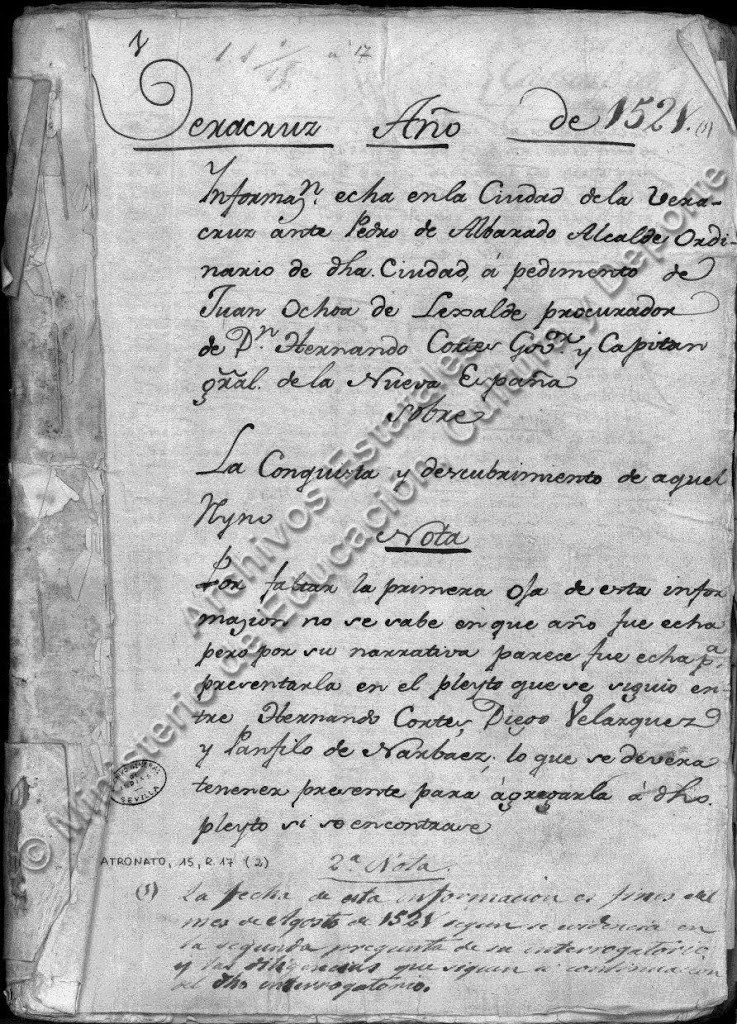 Veracruz Año de 1521. (1)
Informaⁿ. echa en la Ciudad de la Vera-
cruz ante Pedro de Albarado Alcalde Ordi-
nario de dha. Ciudad, á pedimento de
Juan Ochoa de Lexalde procurador
de Dⁿ. Hernando Cortes Govᵒʳ. y Capitan
gral. de la Nueva España
sobre
La Conquista y descubrimiento de aquel
Ryno
Nota
Por faltar la primera oja de esta infor
mazion no se sabe en que año fue echa
pero por su narrativa parece fue echa pᵃ.
presentarla en el pleyto que se siguio en-
tre Hernando Cortes, Diego Velazquez
y Panfilo de Narbaez; lo que se devera
tenener presente para ágregarla á dho.
pleyto si se encontrase
ATRONATO, 15, R. 17 (2)
2ª Nota.
(1) La fecha de esta informacion es fines del
mes de Agosto de 1521 segun se evidencia en
la segunda pregunta de su interrogatorio,
y las diligencias que siguen a continuacion
del dho interrogatorio.
SEVILLA
© Ministerio de Educación, Cultura y Deporte
Archivos Estatales